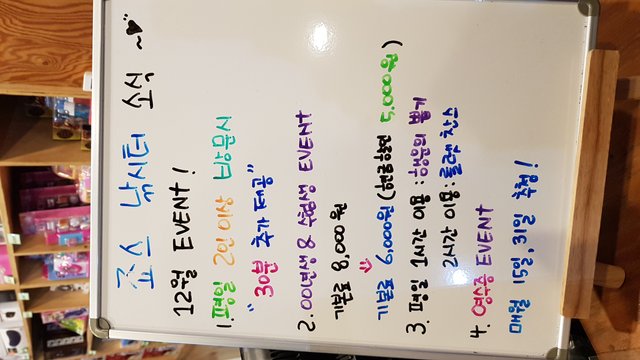 죠스 낚시터 소식 ~♥
12월 EVENT!
1. 평일 2인이상 방문시
"30분 추가 제공"
2. 00년생 & 수험생 EVENT
기본료 8,000원
기본료 6,000원 (현금할인 5,000원)
3. 평일 1시간 이용 : 행운의 뽑기
2시간 이용 : 룰렛 찬스
4. 영수증 EVENT
매월 15일, 31일 추첨!